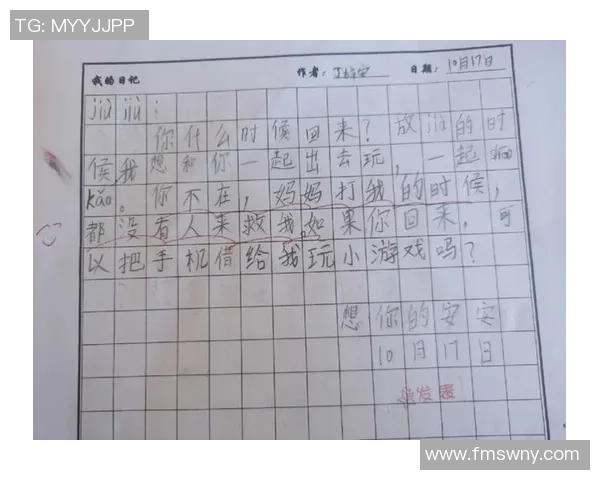 TG: MYYJJPP
我的日记 作者: 日期: 10月17日
jiù jiu:
你什么时候回来?放jià的时
候,我想和你一起出去玩,一起
kǎo。你不在,妈妈打我的时候,
都没有人来救我。如果你回来,可
以把手机借给我玩小游戏吗?
想你的安安
10月17日
发表
www.fmswny.com